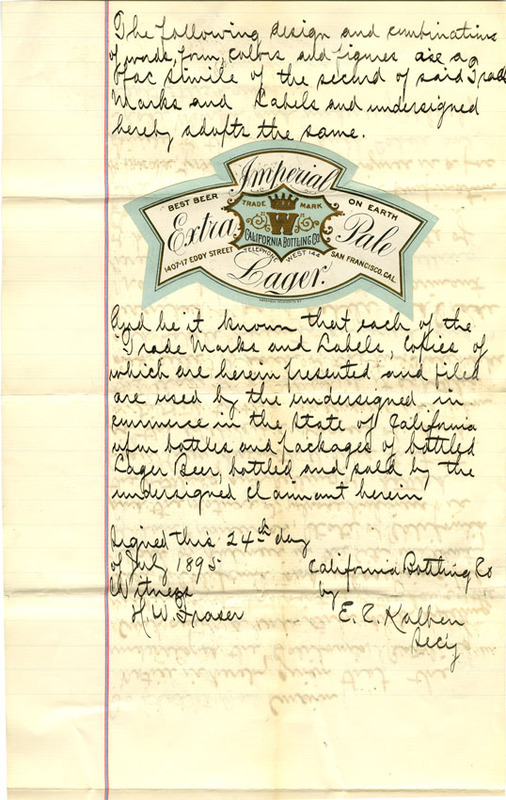 The following design and combinations
of words, form, colors and figures are a
fac simile of the second of said Trade
Marks and Labels and undersigned
hereby adopts the same.
Imperial
BEST BEER
TRADE MARK
ON EARTH
Extra
W
Pale
CALIFORNIA BOTTLING CO.
1407-17 EDDY STREET
TELEPHONE WEST 144
SAN FRANCISCO, CAL.
Lager.
And be it known that each of the
Trade Marks and Labels, copies of
which are herein presented and filed
are used by the undersigned in
commerce in the State of California
upon bottles and packages of bottled
Lager Beer, bottled and sold by the
undersigned claimant herein
Signed this 24th day
of July 1895
California Bottling Co
Witness
by
H. W. Fraser
E. C. Kalben
Secy